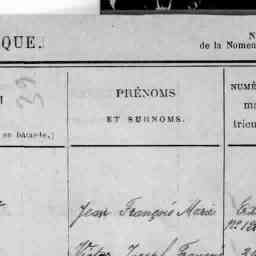 QUE.
N
de la Nomen
39
PRÉNOMS
ET SURNOMS.
NUMÉ
ma
tricu
en bâtarde.)
Jean François Marie
Victor Joseph François